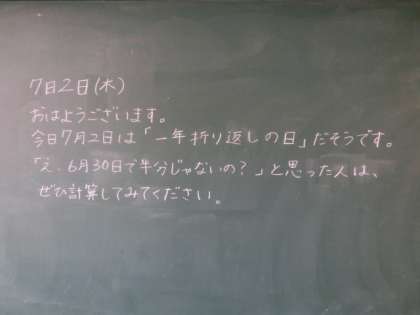 7日2日(木)
おはようございます。
今日7月2日は「一年折り返しの日」だそうです。
「え、6月30日で半分じゃないの?」と思った人は、
ぜひ計算してみてください。